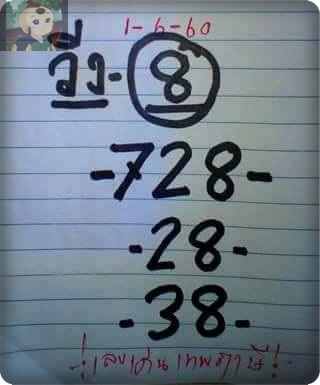 1-6-60
วิ่ง - 8
-728-
-28-
-38-
! เลขเด่น เทพฤาษี !